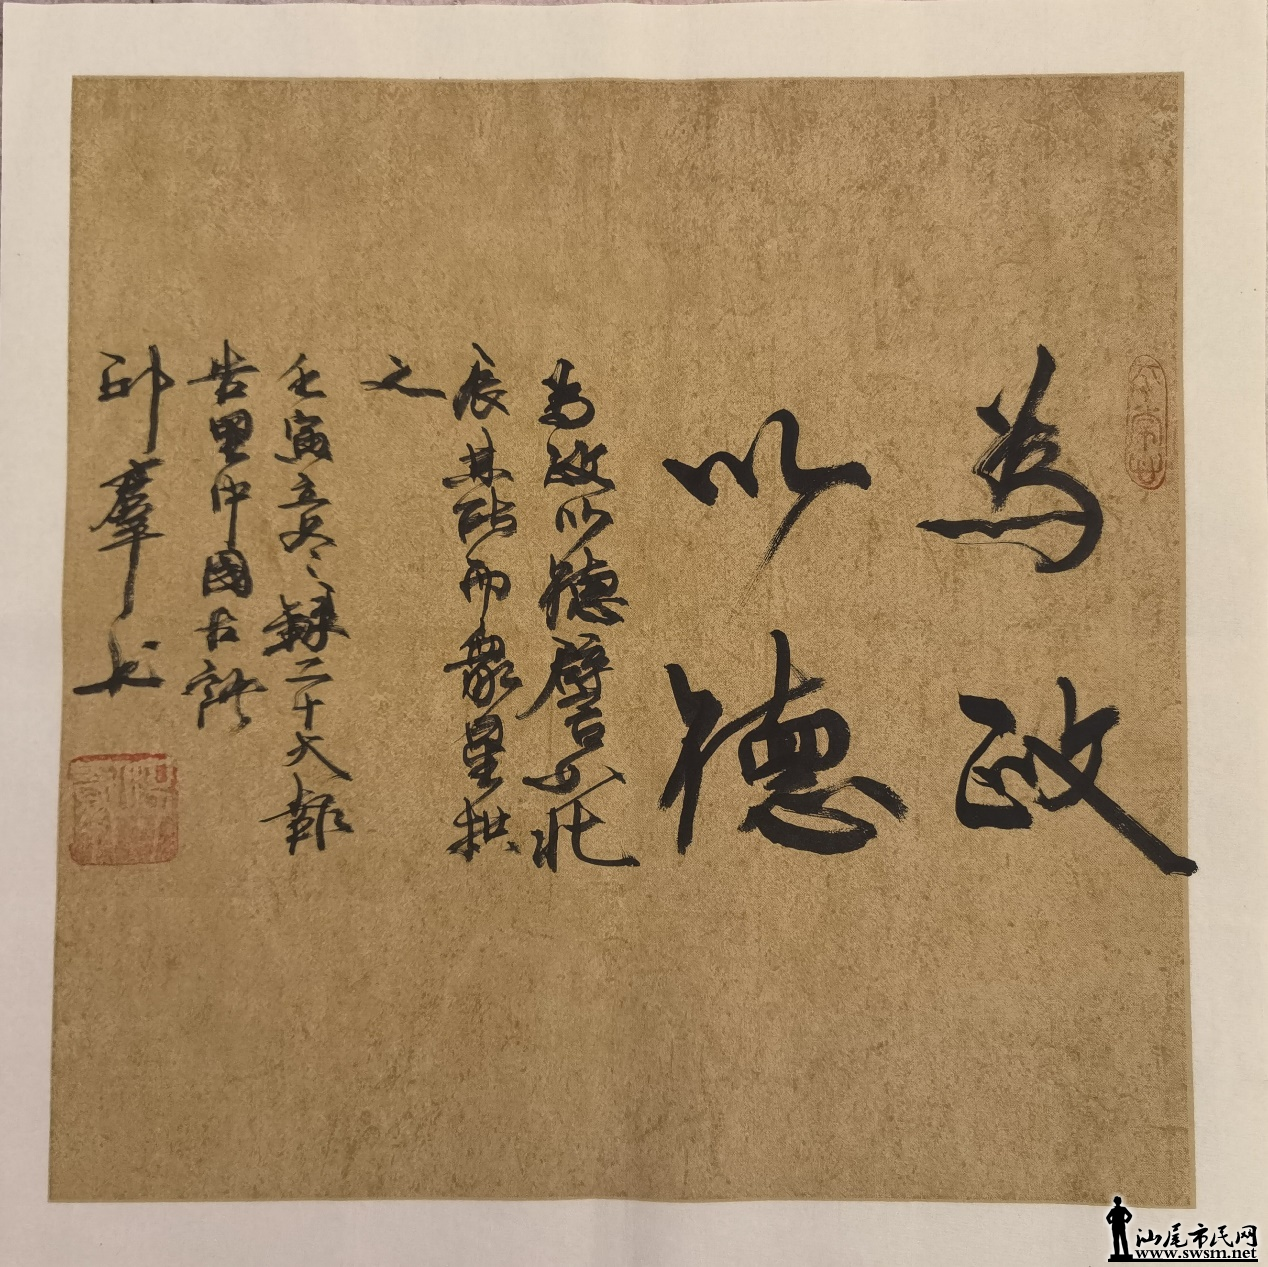 為政
以德
為政以德譬如北
辰其所而眾星拱
之
壬寅立冬錄二十大報
告里中國古語
羣书
汕尾市民网
www.swsm.net